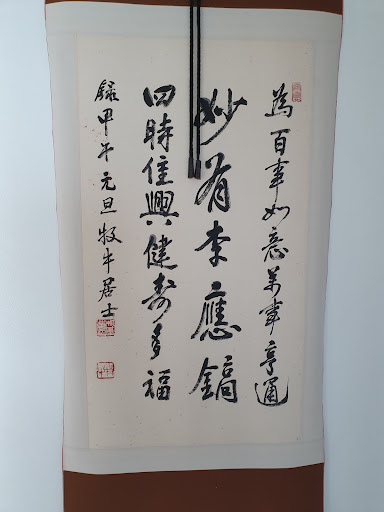 為百事如意萬事亨通
妙有李應鎬
四時佳興健壽多福
錄甲午元旦牧牛居士